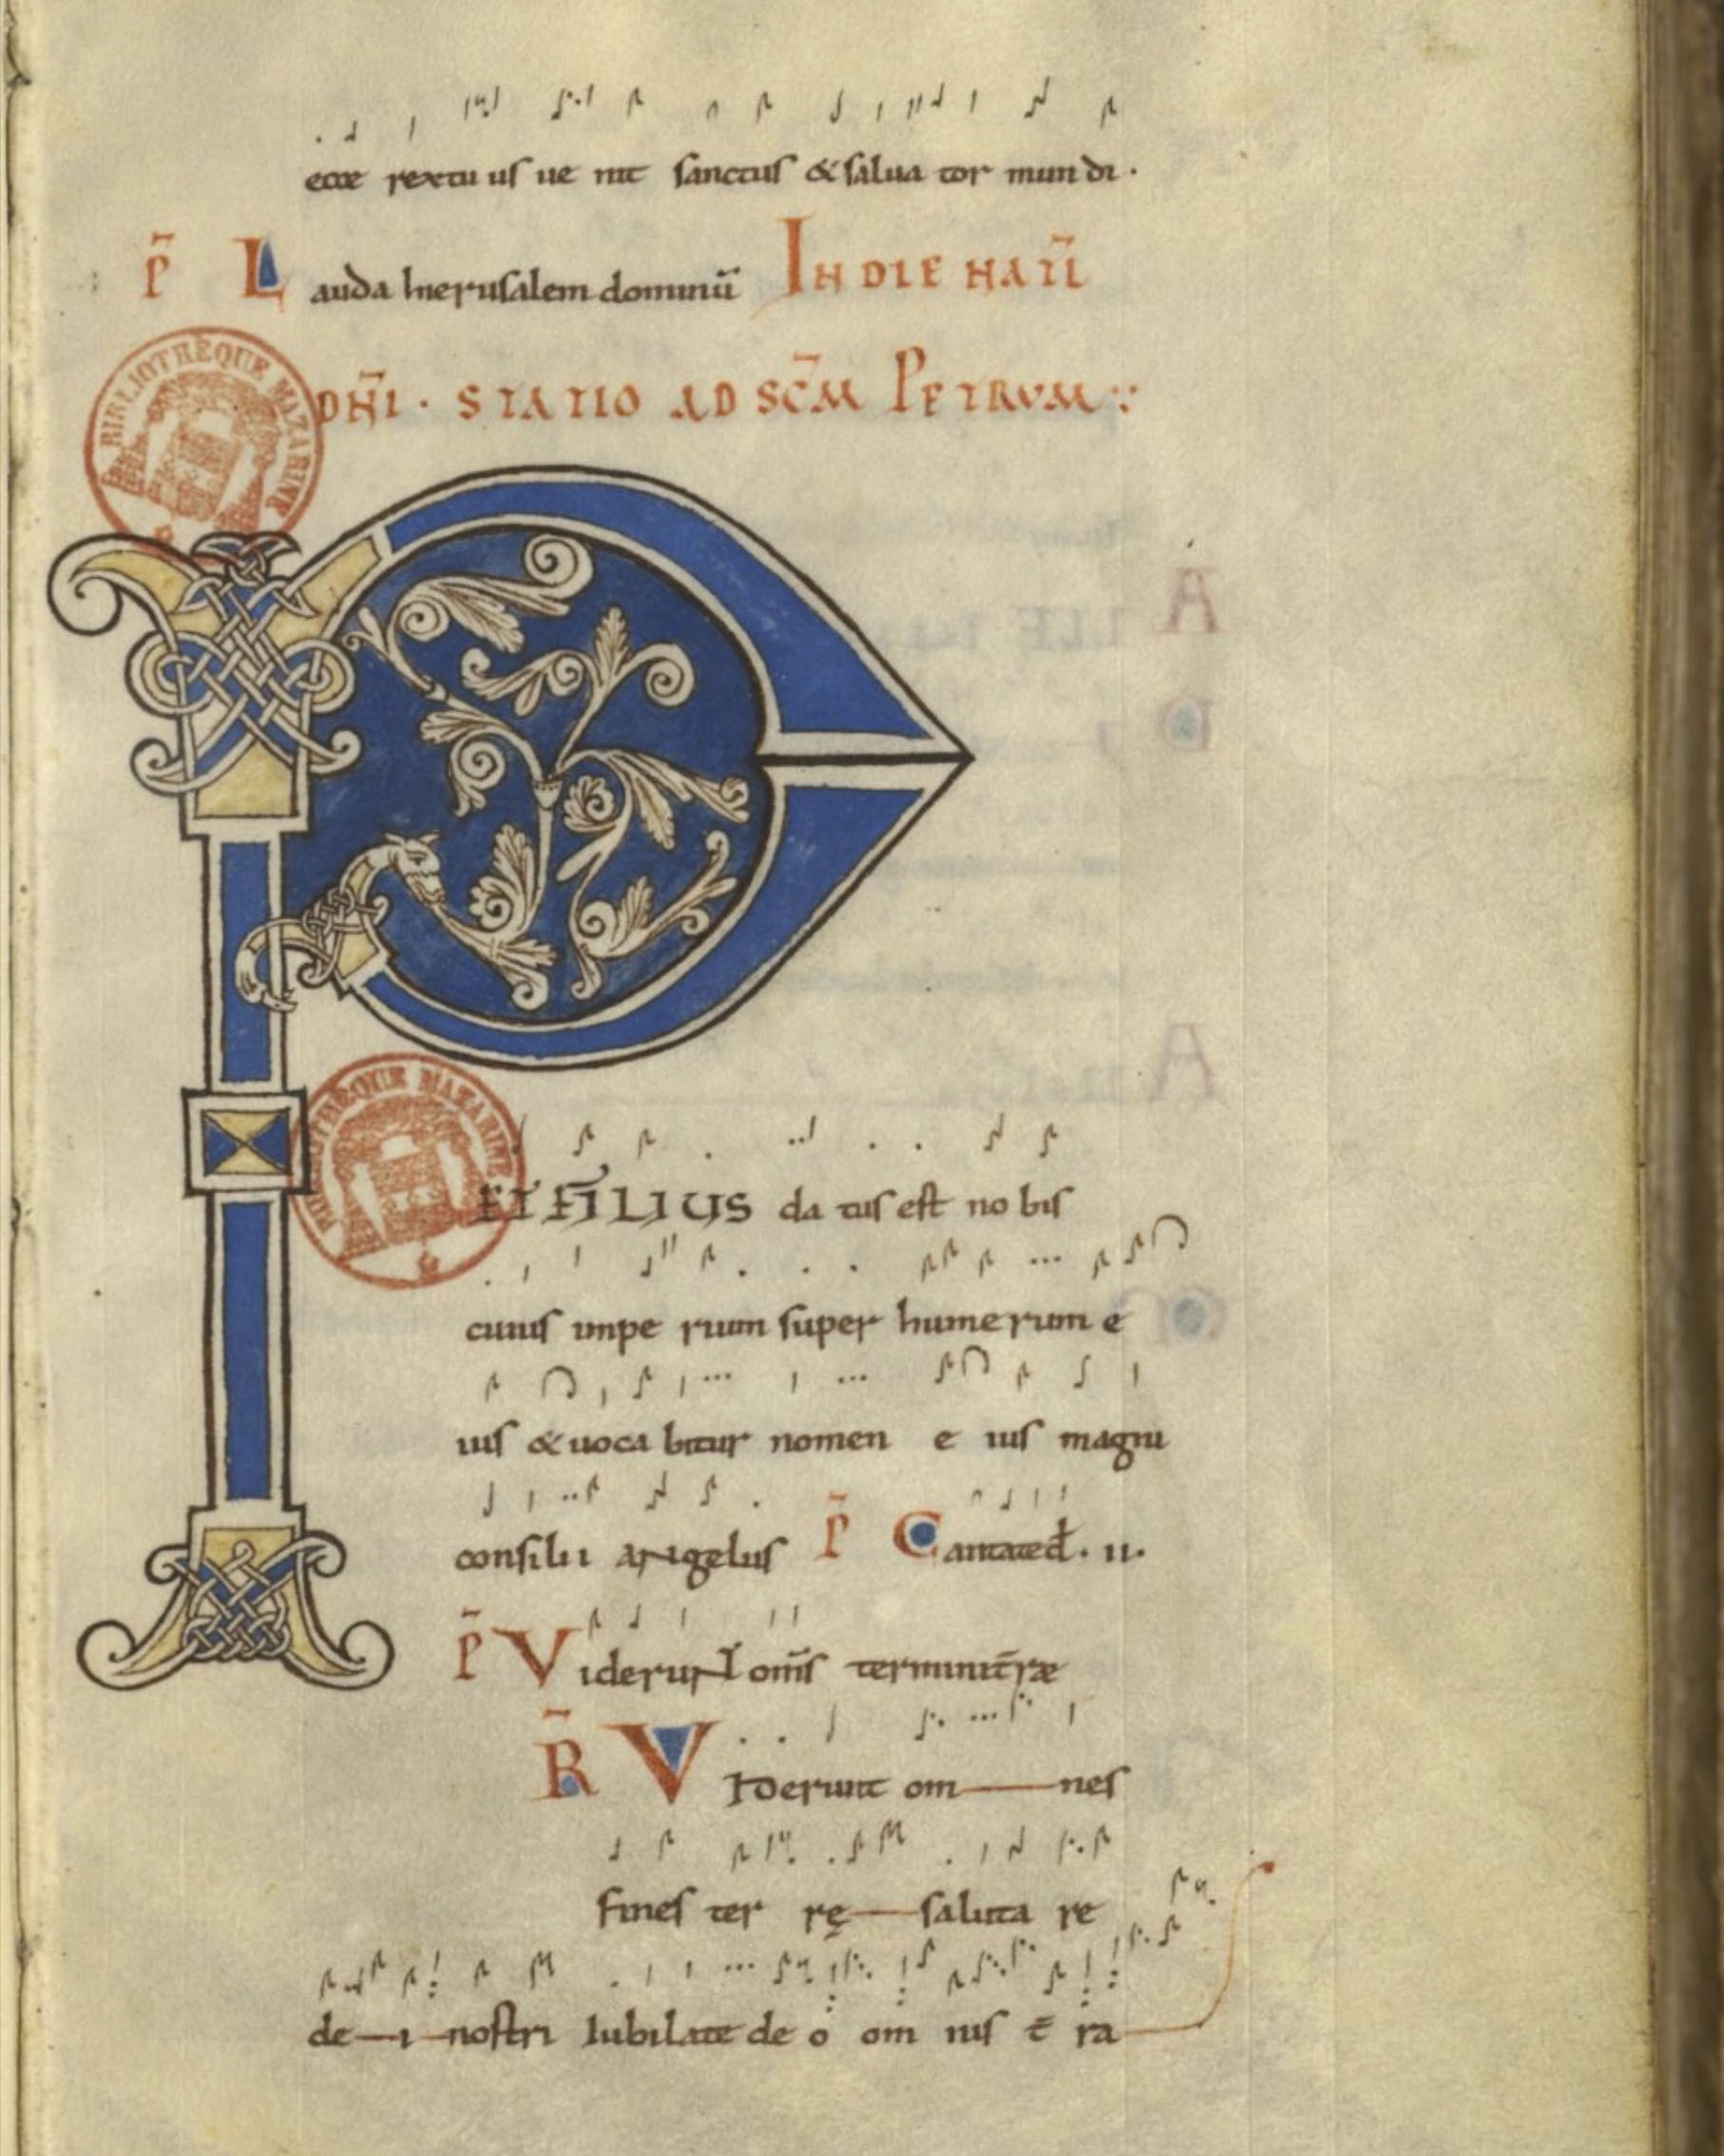 ecce rex tu us ue nit sanctus & salua tor mundi.
P̄ Lauda hierusalem dominū IN DIE NAT̄L
DN̄I · STATIO AD SC̄M PETRVM
BIBLIOTHÈQUE MAZARINE
P
BIBLIOTHÈQUE MAZARINE
ER FĪLIUS da tus est no bis
cuius impe rium super humerum e
ius & uoca bitur nomen e ius magni
consilii angelus P̄ Cantate d̄. ii.
P̄ Viderunt om̄s termini t̄rae
R̄ Viderunt om nes
fines ter rę saluta re
de i nostri Iubilate de o om nis t̄ ra